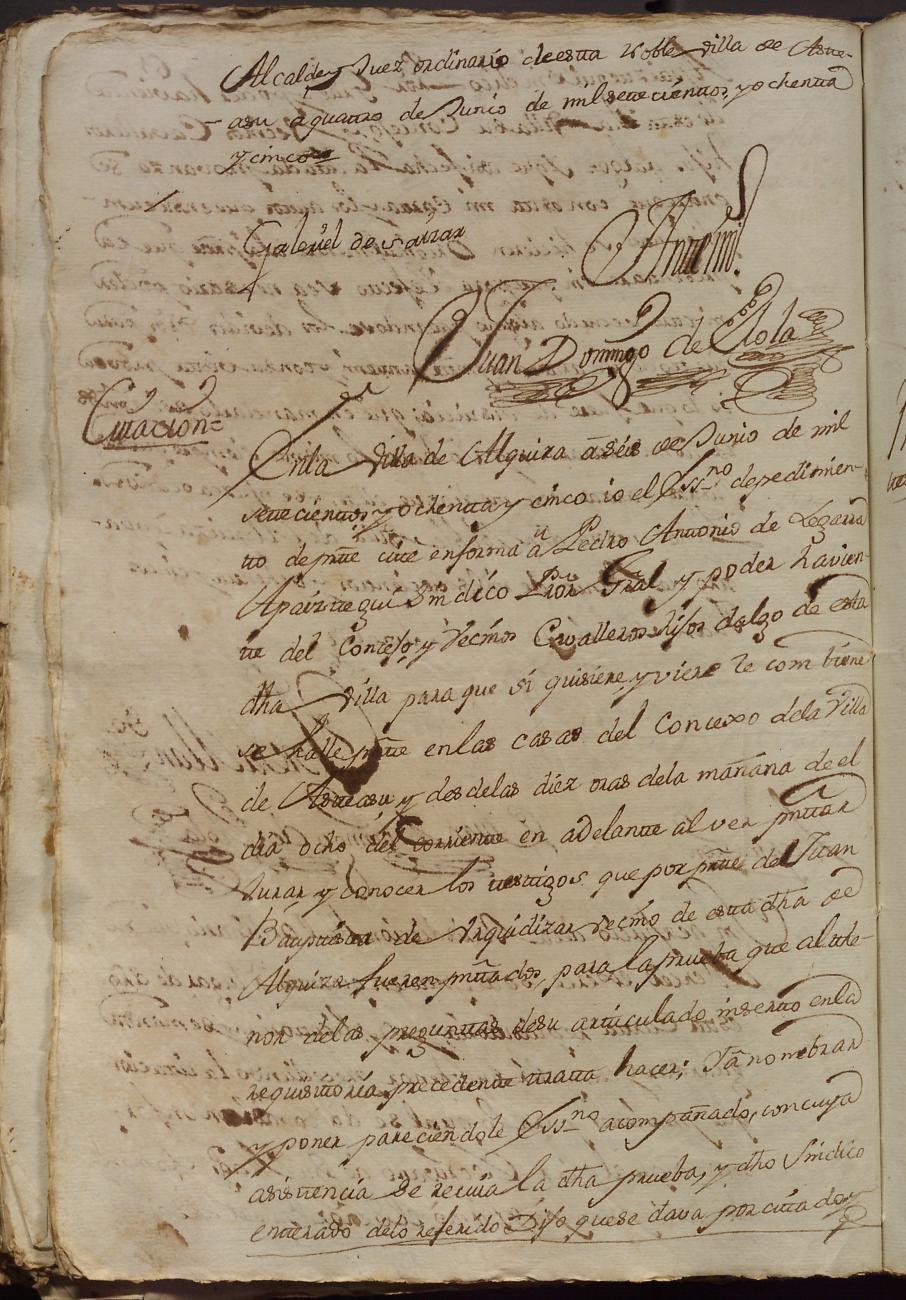 Alcalde y Juez ordinario de esta Noble Villa de Astea-
asu a quatro de Junio de mil setecientos, y ochenta
y cinco
Gabriel de Saizar
Ante mi
Juan Domingo de Elola
Citacion=
En la Villa de Alquiza a seis de Junio de mil
setecientos y ochenta y cinco io el Ess.no de pedimien-
to de pte cite en forma a Pedro Antonio de Legarra
Apaiztegui Sindico Pror Gral y poder havien-
te del Concejo, y Vecinos Cavalleros hijos dalgo de esta
dha Villa para que si quisiere, y viere le combiene
se halle pnte en las casas del Concexo de la Villa
de Asteasu, y desde las diez oras de la mañana de el
dia ocho del corriente en adelante al ver pntar
Jurar y conocer los testigos que por pte de Juan
Baptista de Urquidizar vecino de esta dha de
Alquiza fueren pntados, para la prueba que al the-
nor de las preguntas de su articulado inserto en la
requisitoria precedente trata hacer; Ya nombrar
y poner pareciendole Ess.no acompañado, con cuya
asistencia se reciva la dha prueba, y dho Sindico
enterado de lo referido Dijo que se dava por citado, y